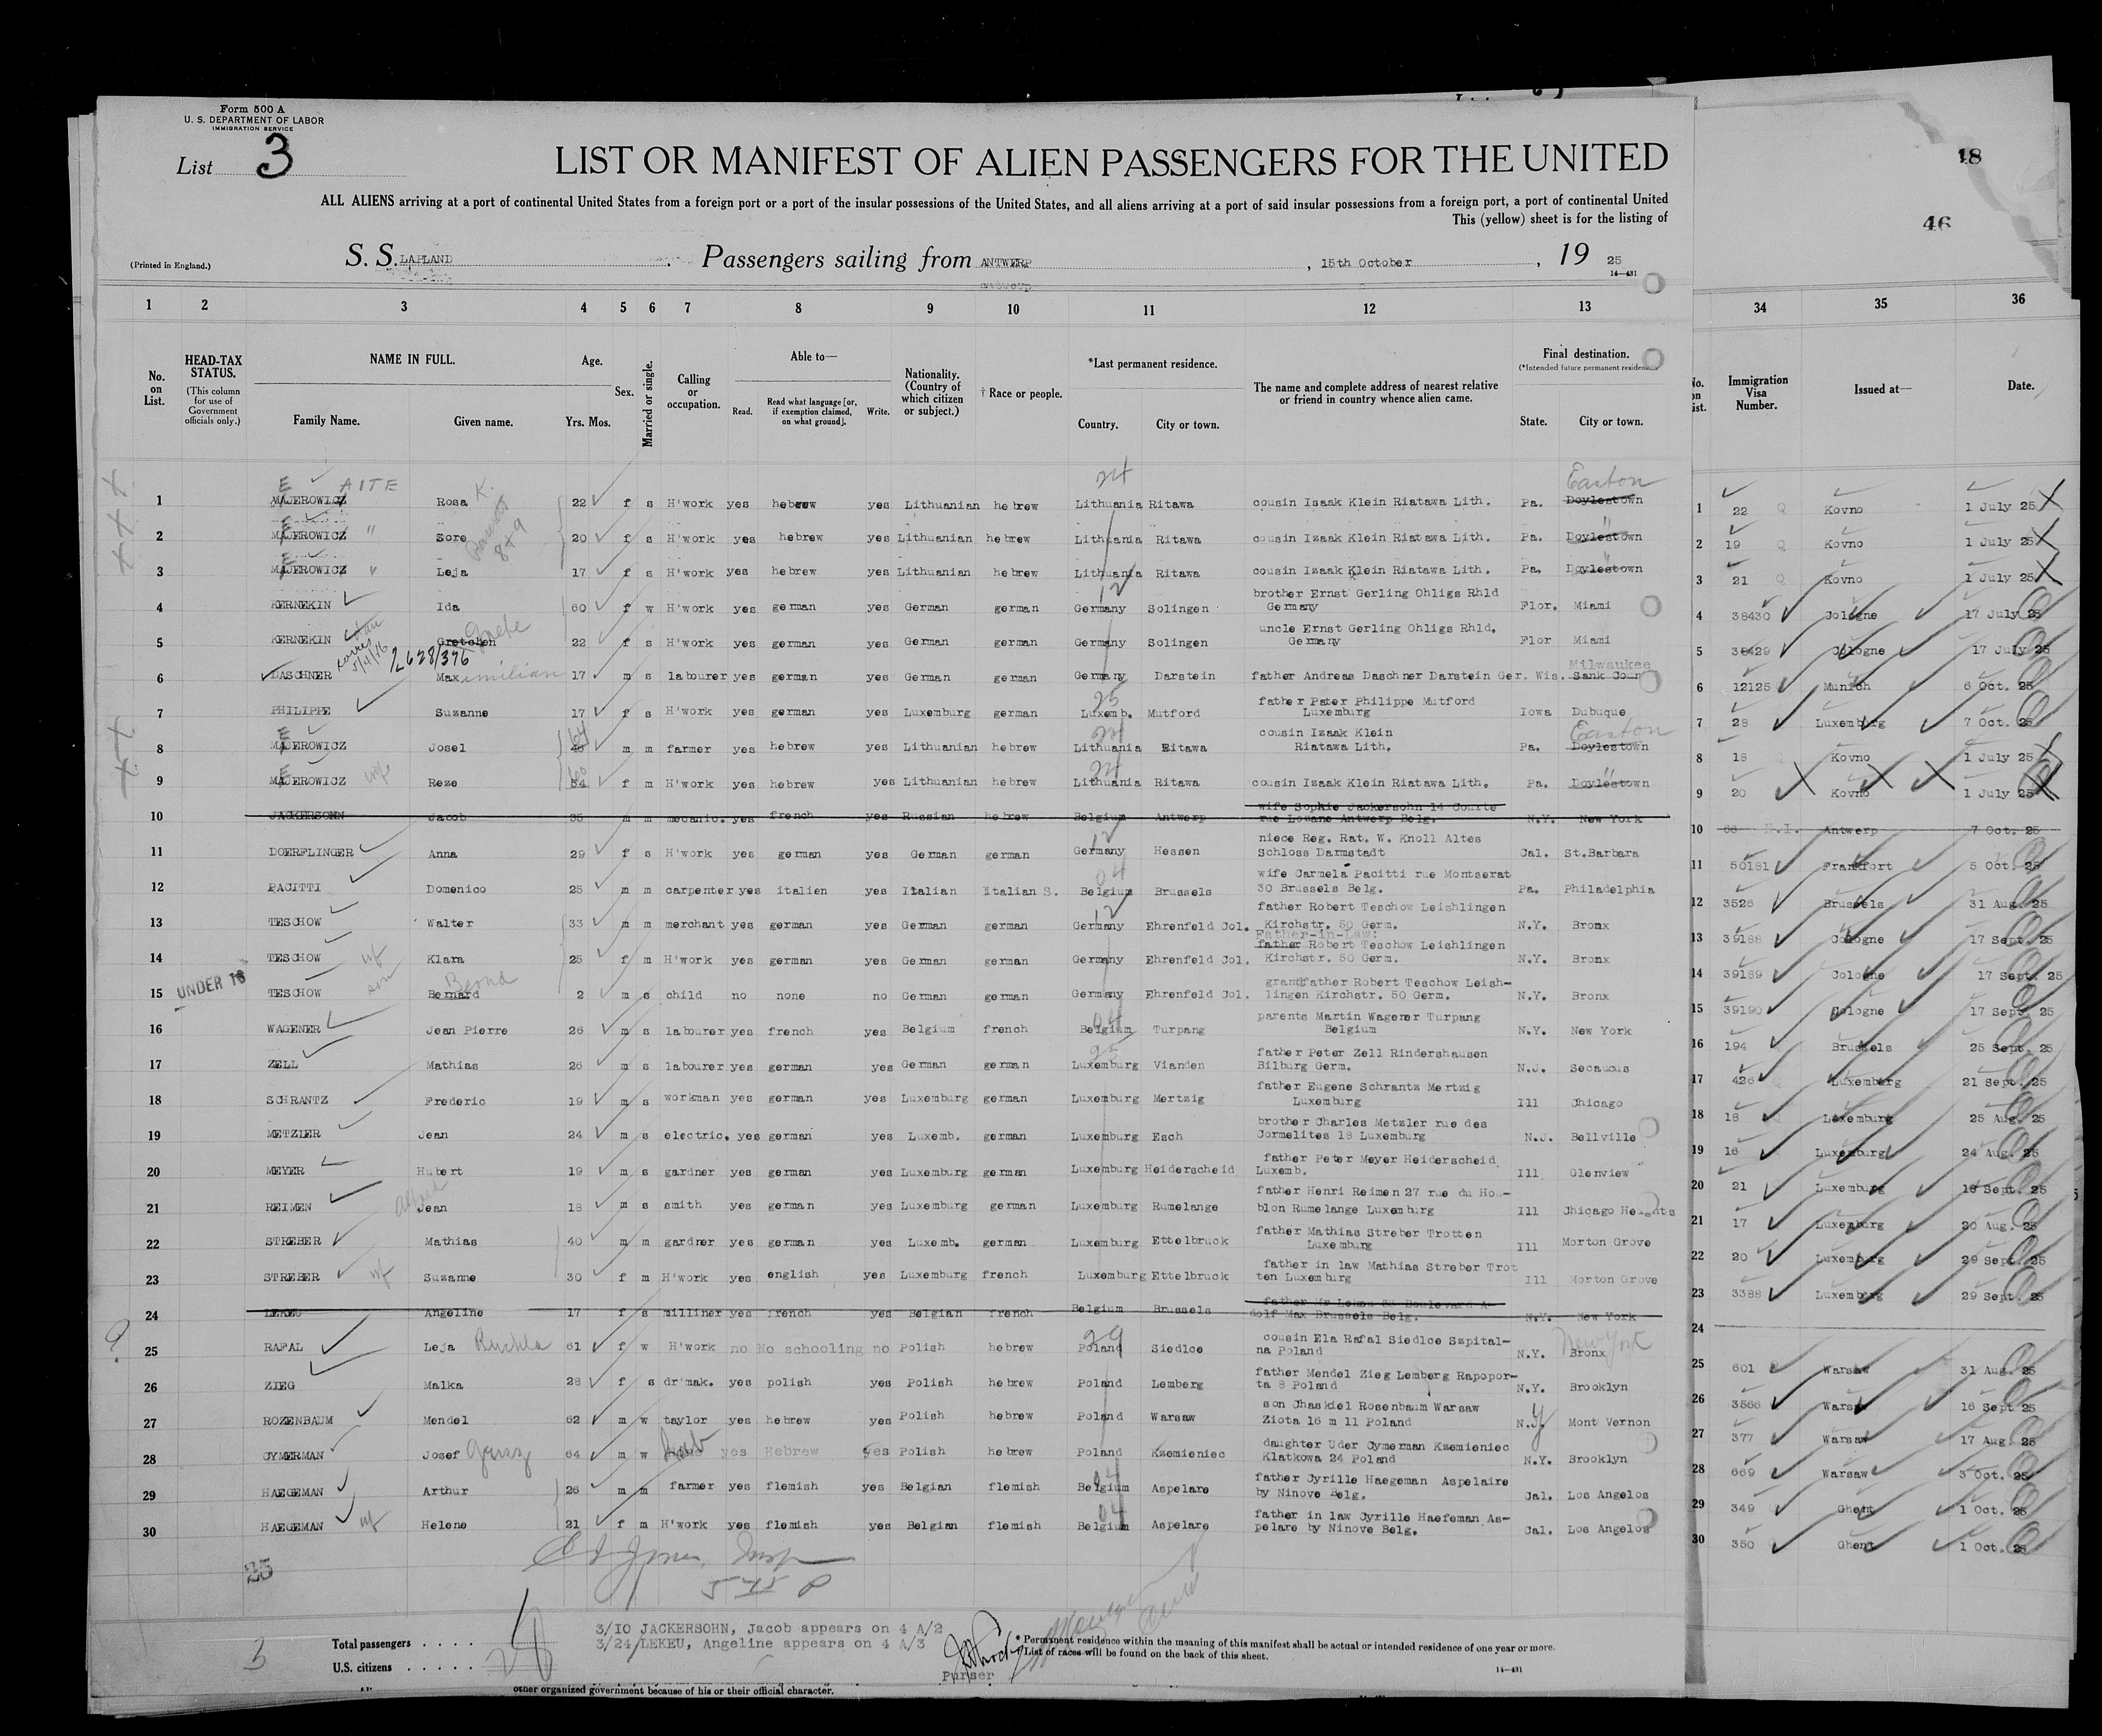 Form 500 A
U. S. DEPARTMENT OF LABOR
IMMIGRATION SERVICE
List 3
LIST OR MANIFEST OF ALIEN PASSENGERS FOR THE UNITED
18
ALL ALIENS arriving at a port of continental United States from a foreign port or a port of the insular possessions of the United States, and all aliens arriving at a port of said insular possessions from a foreign port, a port of continental United
This (yellow) sheet is for the listing of
46
(Printed in England.)
S. S. LAPLAND Passengers sailing from ANTWERP, 15th October, 19 25
14—431
1 2 3 4 5 6 7 8 9 10 11 12 13 34 35 36
No. on List.
HEAD-TAX STATUS.
(This column for use of Government officials only.)
NAME IN FULL.
Family Name. Given name.
Age.
Yrs. Mos.
Sex.
Married or single.
Calling or occupation.
Able to—
Read. Read what language [or, if exemption claimed, on what ground]. Write.
Nationality. (Country of which citizen or subject.)
† Race or people.
*Last permanent residence.
Country. City or town.
The name and complete address of nearest relative or friend in country whence alien came.
Final destination.
(*Intended future permanent residence.)
State. City or town.
Immigration Visa Number.
Issued at—
Date.
1 MAJEROWICZ E AITE Rosa K. 22 f s H'work yes hebrew yes Lithuanian hebrew 24 Lithuania Ritawa cousin Isaak Klein Riatawa Lith. Pa. Doylestown Easton 1 22 Q Kovno 1 July 25
2 MAJEROWICZ E " Sore 20 f s H'work yes hebrew yes Lithuanian hebrew Lithuania Ritawa cousin Izaak Klein Riatawa Lith. Pa. Doylestown " 2 19 Q Kovno 1 July 25
3 MAJEROWICZ E " Leja 17 f s H'work yes hebrew yes Lithuanian hebrew Lithuania Ritawa cousin Izaak Klein Riatawa Lith. Pa. Doylestown " 3 21 Q Kovno 1 July 25
Parents 8+9
4 KERNEKIN Ida 60 f w H'work yes german yes German german 12 Germany Solingen brother Ernst Gerling Ohligs Rhld Germany Flor. Miami 4 38430 Cologne 17 July 25
5 KERNEKIN Gretchen Grete 22 f s H'work yes german yes German german Germany Solingen uncle Ernst Gerling Ohligs Rhld. Germany Flor Miami 5 38429 Cologne 17 July 25
2628/396
6 DASCHNER Maximilian 17 m s labourer yes german yes German german Germany Darstein father Andreas Daschner Darstein Ger. Wis. Sank Coun Milwaukee 6 12125 Munich 6 Oct. 25
7 PHILIPPE Suzanne 17 f s H'work yes german yes Luxemburg german 25 Luxemb. Mutford father Peter Philippe Mutford Luxemburg Iowa Dubuque 7 28 Luxemburg 7 Oct. 25
8 MAJEROWICZ E Josel 64 m m farmer yes hebrew yes Lithuanian hebrew 24 Lithuania Ritawa cousin Izaak Klein Riatawa Lith. Pa. Doylestown Easton 8 18 Kovno 1 July 25
9 MAJEROWICZ E wife Reze 54 60 f m H'work yes hebrew yes Lithuanian hebrew 24 Lithuania Ritawa cousin Izaak Klein Riatawa Lith. Pa. Doylestown " 9 20 Kovno 1 July 25
10 JACKERSOHN Jacob 35 m m mecanic. yes french yes Russian hebrew Belgium Antwerp wife Sophie Jackersohn 14 Courte rue Lozane Antwerp Belg. N.Y. New York 10 66 N.I. Antwerp 7 Oct. 25
11 DOERFLINGER Anna 29 f s H'work yes german yes German german 12 Germany Hessen niece Reg. Rat. W. Knoll Altes Schloss Darmstadt Cal. St.Barbara 11 50181 Frankfort 5 Oct. 25
12 PACITTI Domenico 25 m m carpenter yes italien yes Italian Italian S. 04 Belgium Brussels wife Carmela Pacitti rue Montserat 30 Brussels Belg. Pa. Philadelphia 12 3526 Brussels 31 Aug. 25
13 TESCHOW Walter 33 m m merchant yes german yes German german 12 Germany Ehrenfeld Col. father Robert Teschow Leishlingen Kirchstr. 50 Germ. N.Y. Bronx 13 39188 Cologne 17 Sept. 25
14 TESCHOW wf Klara 25 f m H'work yes german yes German german Germany Ehrenfeld Col. Father-in-Law: father Robert Teschow Leishlingen Kirchstr. 50 Germ. N.Y. Bronx 14 39189 Cologne 17 Sept. 25
15 UNDER 16 TESCHOW son Bernard Bernd 2 m s child no none no German german Germany Ehrenfeld Col. grandfather Robert Teschow Leish-lingen Kirchstr. 50 Germ. N.Y. Bronx 15 39190 Cologne 17 Sept 25
16 WAGENER Jean Pierre 26 m s labourer yes french yes Belgium french 04 Belgium Turpang parents Martin Wagener Turpang Belgium N.Y. New York 16 194 Brussels 25 Sept. 25
17 ZELL Mathias 26 m s labourer yes german yes German german 25 Luxemburg Vianden father Peter Zell Rindershausen Bilburg Germ. N.J. Secaucus 17 426 Luxemburg 21 Sept. 25
18 SCHRANTZ Frederic 19 m s workman yes german yes Luxemburg german Luxemburg Mertzig father Eugene Schrantz Mertzig Luxemburg Ill Chicago 18 18 Luxemburg 25 Aug. 25
19 METZLER Jean 24 m s electric. yes german yes Luxemb. german Luxemburg Esch brother Charles Metzler rue des Cormelites 18 Luxemburg N.J. Bellville 19 16 Luxemburg 24 Aug. 25
20 MEYER Hubert 19 m s gardner yes german yes Luxemburg german Luxemburg Heiderscheid father Peter Meyer Heiderscheid Luxemb. Ill Glenview 20 21 Luxemburg 16 Sept. 25
21 REIMEN Alfred Jean 18 m s smith yes german yes Luxemburg german Luxemburg Rumelange father Henri Reimen 27 rue du Hou-blon Rumelange Luxemburg Ill Chicago Heights 21 17 Luxemburg 20 Aug. 25
22 STREBER Mathias 40 m m gardner yes german yes Luxemb. german Luxemburg Ettelbruck father Mathias Streber Trotten Luxemburg Ill Morton Grove 22 20 Luxemburg 29 Sept. 25
23 STREBER wf Suzanne 30 f m H'work yes english yes Luxemburg french Luxemburg Ettelbruck father in law Mathias Streber Trot ten Luxemburg Ill Morton Grove 23 3388 Luxemburg 29 Sept. 25
24 LEKEU Angeline 17 f s milliner yes french yes Belgian french Belgium Brussels father Mr Lekeu 83 Boulevard A-dolf Max Brussels Belg. N.Y. New York 24
25 RAFAL Leja Ruchla 61 f w H'work no No schooling no Polish hebrew 29 Poland Siedlce cousin Ela Rafal Siedlce Szpital-na Poland N.Y. Bronx New York 25 601 Warsaw 31 Aug. 25
26 ZIEG Malka 28 f s dr'mak. yes polish yes Polish hebrew Poland Lemberg father Mendel Zieg Lemberg Rapopor-ta 8 Poland N.Y. Brooklyn 26 3566 Warsaw 16 Sept 25
27 ROZENBAUM Mendel 62 m w taylor yes hebrew yes Polish hebrew Poland Warsaw son Chaskiel Rosenbaum Warsaw Ziota 16 m 11 Poland N.J. Y Mont Vernon 27 377 Warsaw 17 Aug. 25
28 CYMERMAN Josef 64 m w yes Hebrew yes Polish hebrew Poland Kzemieniec daughter Uder Cymerman Kzemieniec Klatkowa 24 Poland N.Y. Brooklyn 28 669 Warsaw 3 Oct. 25
29 HAEGEMAN Arthur 26 m m farmer yes flemish yes Belgian flemish 04 Belgium Aspelare father Cyrille Haegeman Aspelaire by Ninove Belg. Cal. Los Angelos 29 349 Ghent 1 Oct. 25
30 HAEGEMAN wf Helene 21 f m H'work yes flemish yes Belgian flemish 04 Belgium Aspelare father in law Cyrille Haefeman As-pelare by Ninove Belg. Cal. Los Angelos 30 350 Ghent 1 Oct. 25
25
3/10 JACKERSOHN, Jacob appears on 4 A/2
3/24 LEKEU, Angeline appears on 4 A/3
Total passengers 28
U.S. citizens
Purser
* Permanent residence within the meaning of this manifest shall be actual or intended residence of one year or more.
† List of races will be found on the back of this sheet.
14—431
other organized government because of his or their official character.